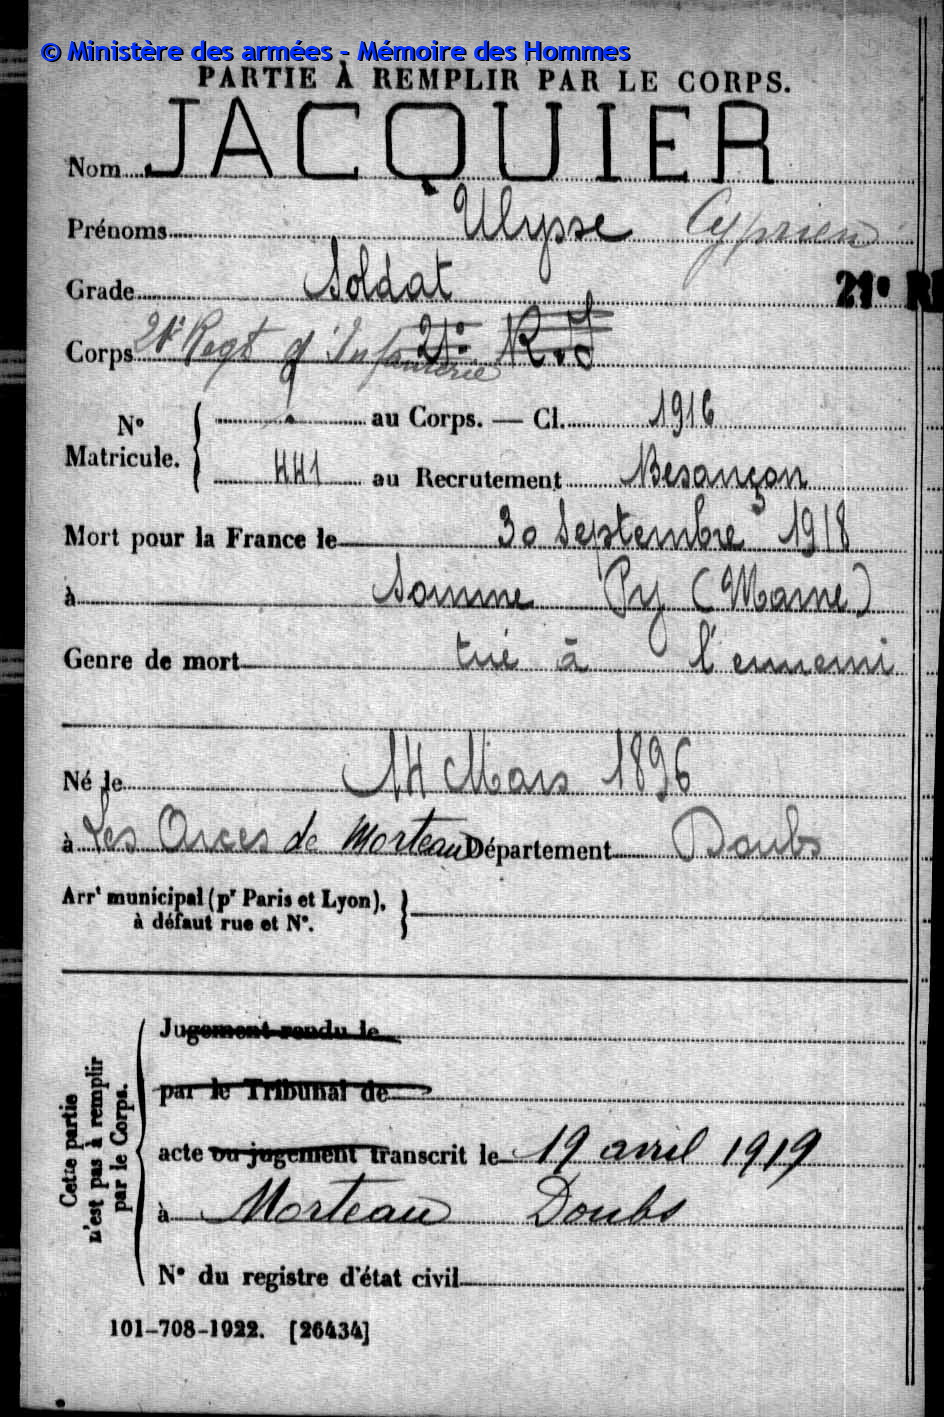 © Ministère des armées - Mémoire des Hommes
PARTIE À REMPLIR PAR LE CORPS.
Nom JACQUIER
Prénoms Ulysse Cyprien
Grade Soldat
21e RE
Corps 21e Regt d'Infanterie 21e R.I
No Matricule. { au Corps. — Cl. 1916
441 au Recrutement Besançon
Mort pour la France le 30 Septembre 1918
à Somme Py (Marne)
Genre de mort tué à l'ennemi
Né le 14 Mars 1896
à Les Arces de Morteau Département Doubs
Arrt municipal (pr Paris et Lyon),
à défaut rue et No. }
Cette partie
n'est pas à remplir
par le Corps.
Jugement rendu le
par le Tribunal de
acte ou jugement transcrit le 19 avril 1919
à Morteau Doubs
No du registre d'état civil
101-708-1922. [26434]